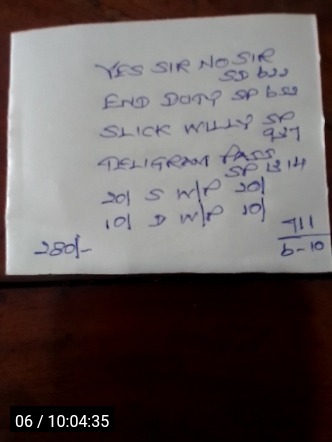 YES SIR NO SIR
SD 622
END DOTY SP 652
SLICK WILLY SP
927
TELIGRAM PASS
SP 1314
20/ S W/P 20/
10/ D W/P 10/
280/-
T11
6-10
06 / 10:04:35